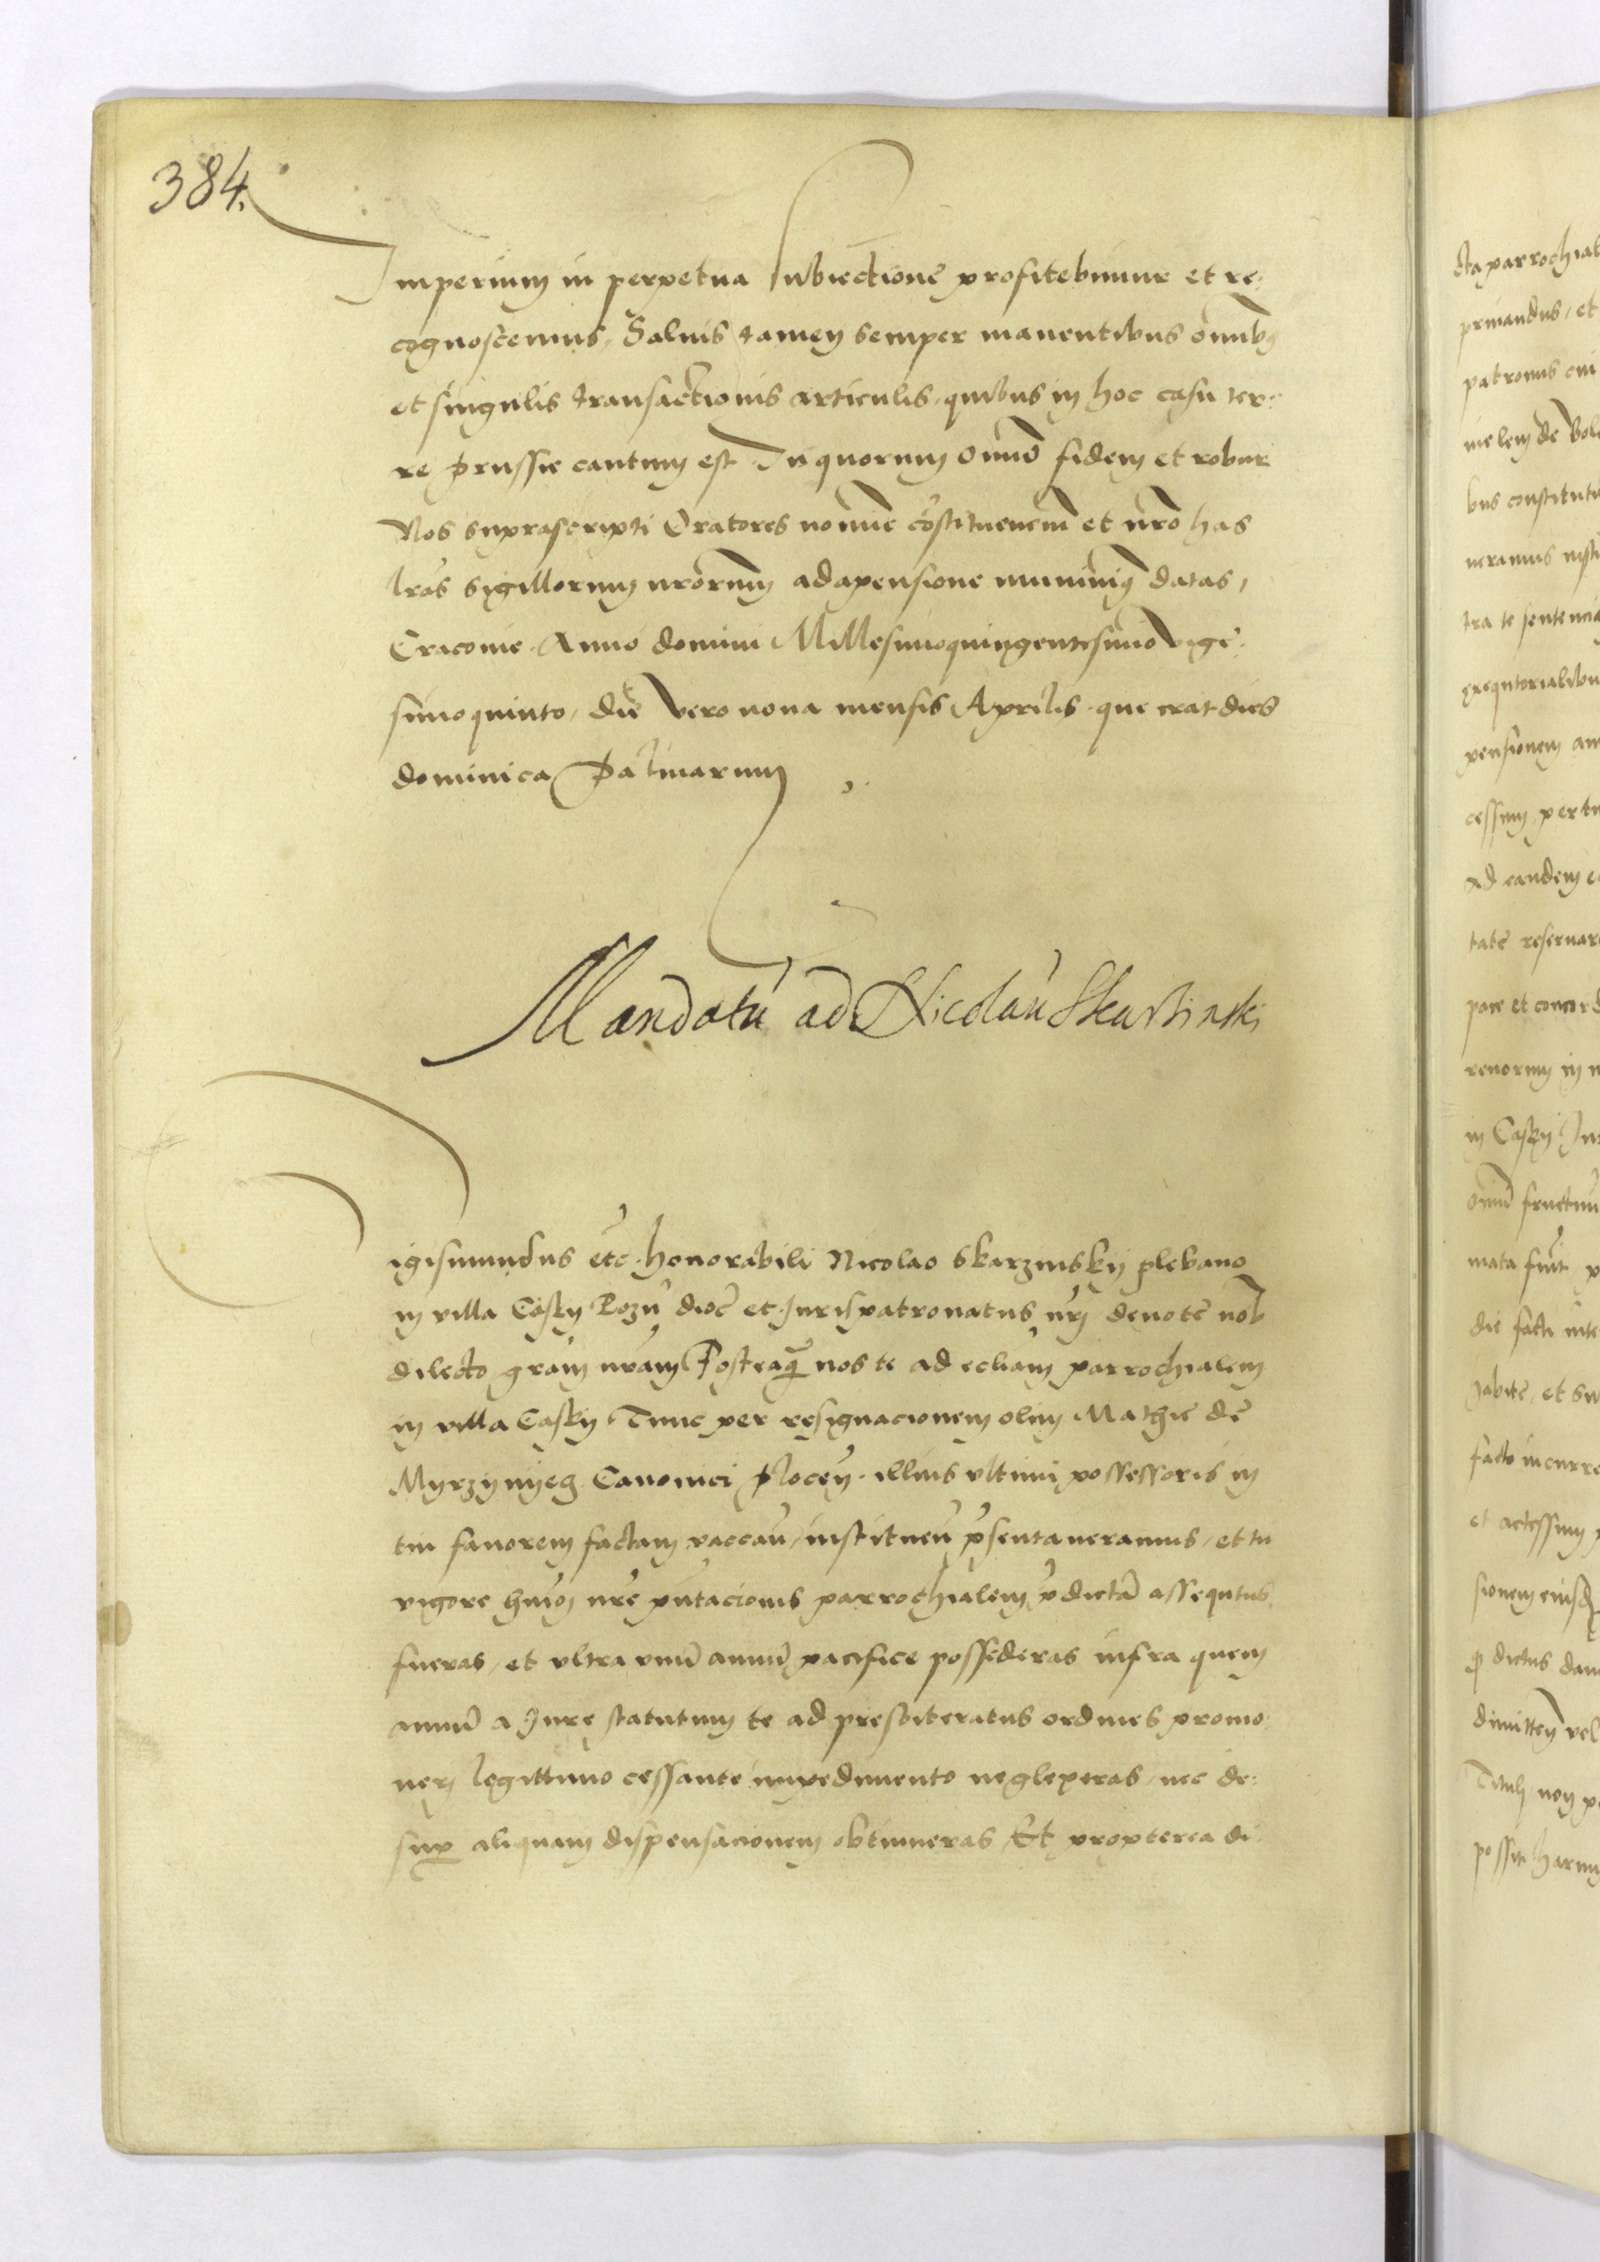 384.
Imperium in perpetua subiectione profitebimur et re:
cognoscemus, Saluis tamen semper manentibus omnibus
et singulis transactionis articulis, quibus in hoc casu ter:
re prussie cautum est. In quorum omnium fidem et robur
Nos suprascripti Oratores nomine constituencium et nostro has
lras sigillorum nrorum adapensione munimus datas,
Cracovie. Anno domini Millesimoquingentesimo vige:
simoquinto, die vero nona mensis Aprilis. que erat dies
dominica Palmarum
Mandatu ad Nicolau Skarsinski
igismundus etc. honorabili Nicolao Skarzinskij plebano
in villa Casky Pozn dioc et Jurispatronatus nri deuote nob
dilecto gram nram Posteaq nos te ad ecliam parrochialem
in villa Casky Tunc per resignacionem olim Mathie de
Myrzynyeg Canonici plocen. illius vltimi possessoris in
tui fauorem factam vaccan, instituen psentaueramus, et tu
vigore hmoi nre pntacionis parrochialem pdicta assequtus
fueras, et vltra vnu annu pacifice possederas infra quem
annu a Jure statutum te ad presbiteratus ordines promo:
ueri legittimo cessante impedimento neglexeras, nec de:
sup aliquam dispensacionem obtinueras Et propterea di:
cta parrochial
priuandus, et
patronus cui
bus constitutu
tra te sentencia
exequtorialibu
pensionem an
cessum pertu
ad eandem e
tate reseruar
pace et concord
in Casky Jur
omnium fructuu
mata fuit p
die facti inte
facto incurre
et accessum p
sionem eiusd
possit harum